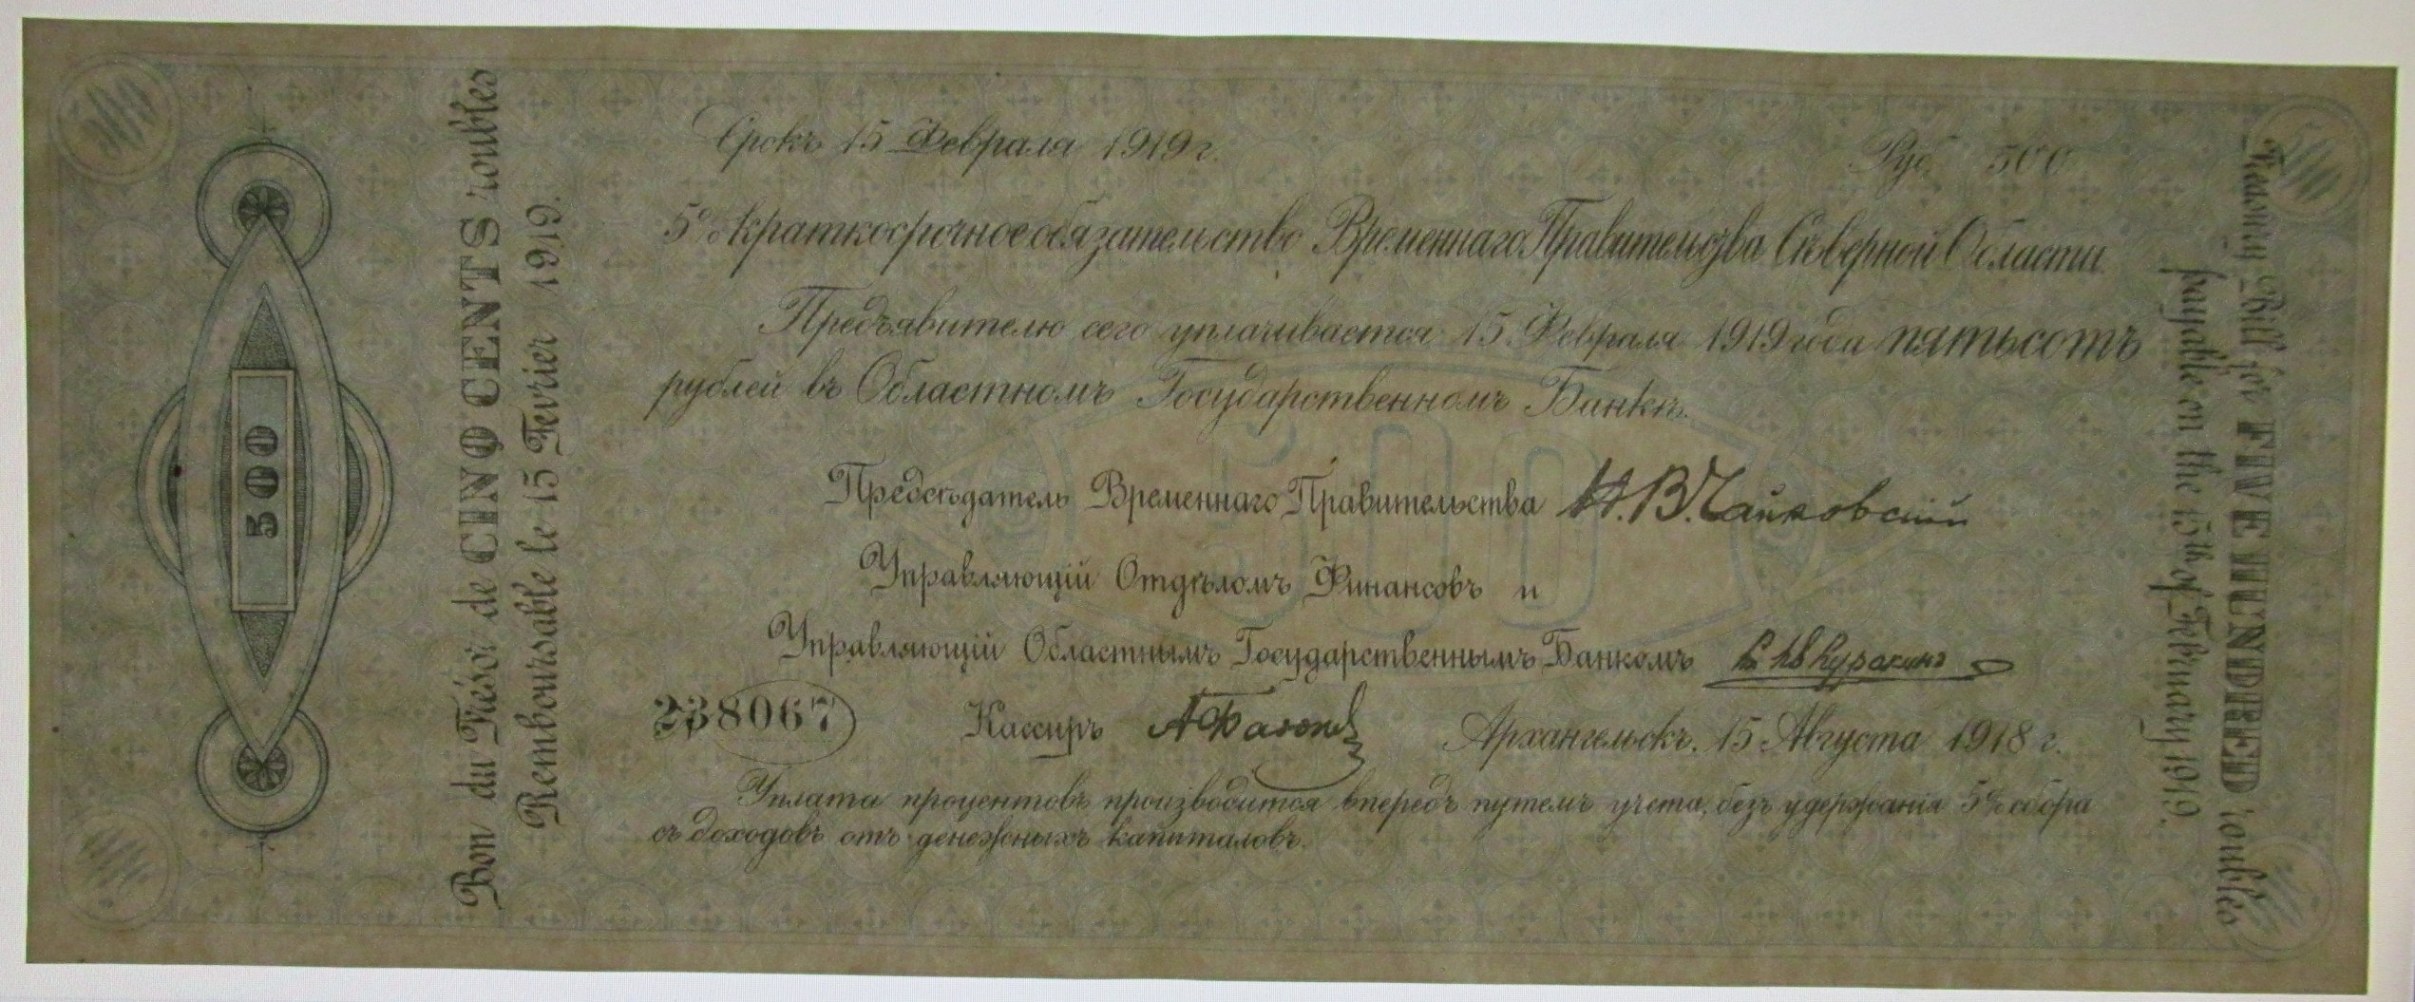 Bon du Trésor de CINQ CENTS roubles
Remboursable le 15 Fevrier 1919.
500
Срокъ 15 Февраля 1919 г.
Руб. 500
5% краткосрочное обязательство Временнаго Правительства Сѣверной Области
Предъявителю сего уплачивается 15 Февраля 1919 года пятьсотъ
рублей въ Областномъ Государственномъ Банкѣ.
500
Предсѣдатель Временнаго Правительства Н. В. Чайковскій
Управляющій Отдѣломъ Финансовъ и
Управляющій Областнымъ Государственнымъ Банкомъ Куракинъ
238067
Кассиръ
Архангельскъ. 15 Августа 1918 г.
Уплата процентовъ производится впередъ путемъ учета, безъ удержанія 5% сбора
съ доходовъ отъ денежныхъ капиталовъ.
Treasury Bill for FIVE HUNDRED roubles
payable on the 15th of February 1919.